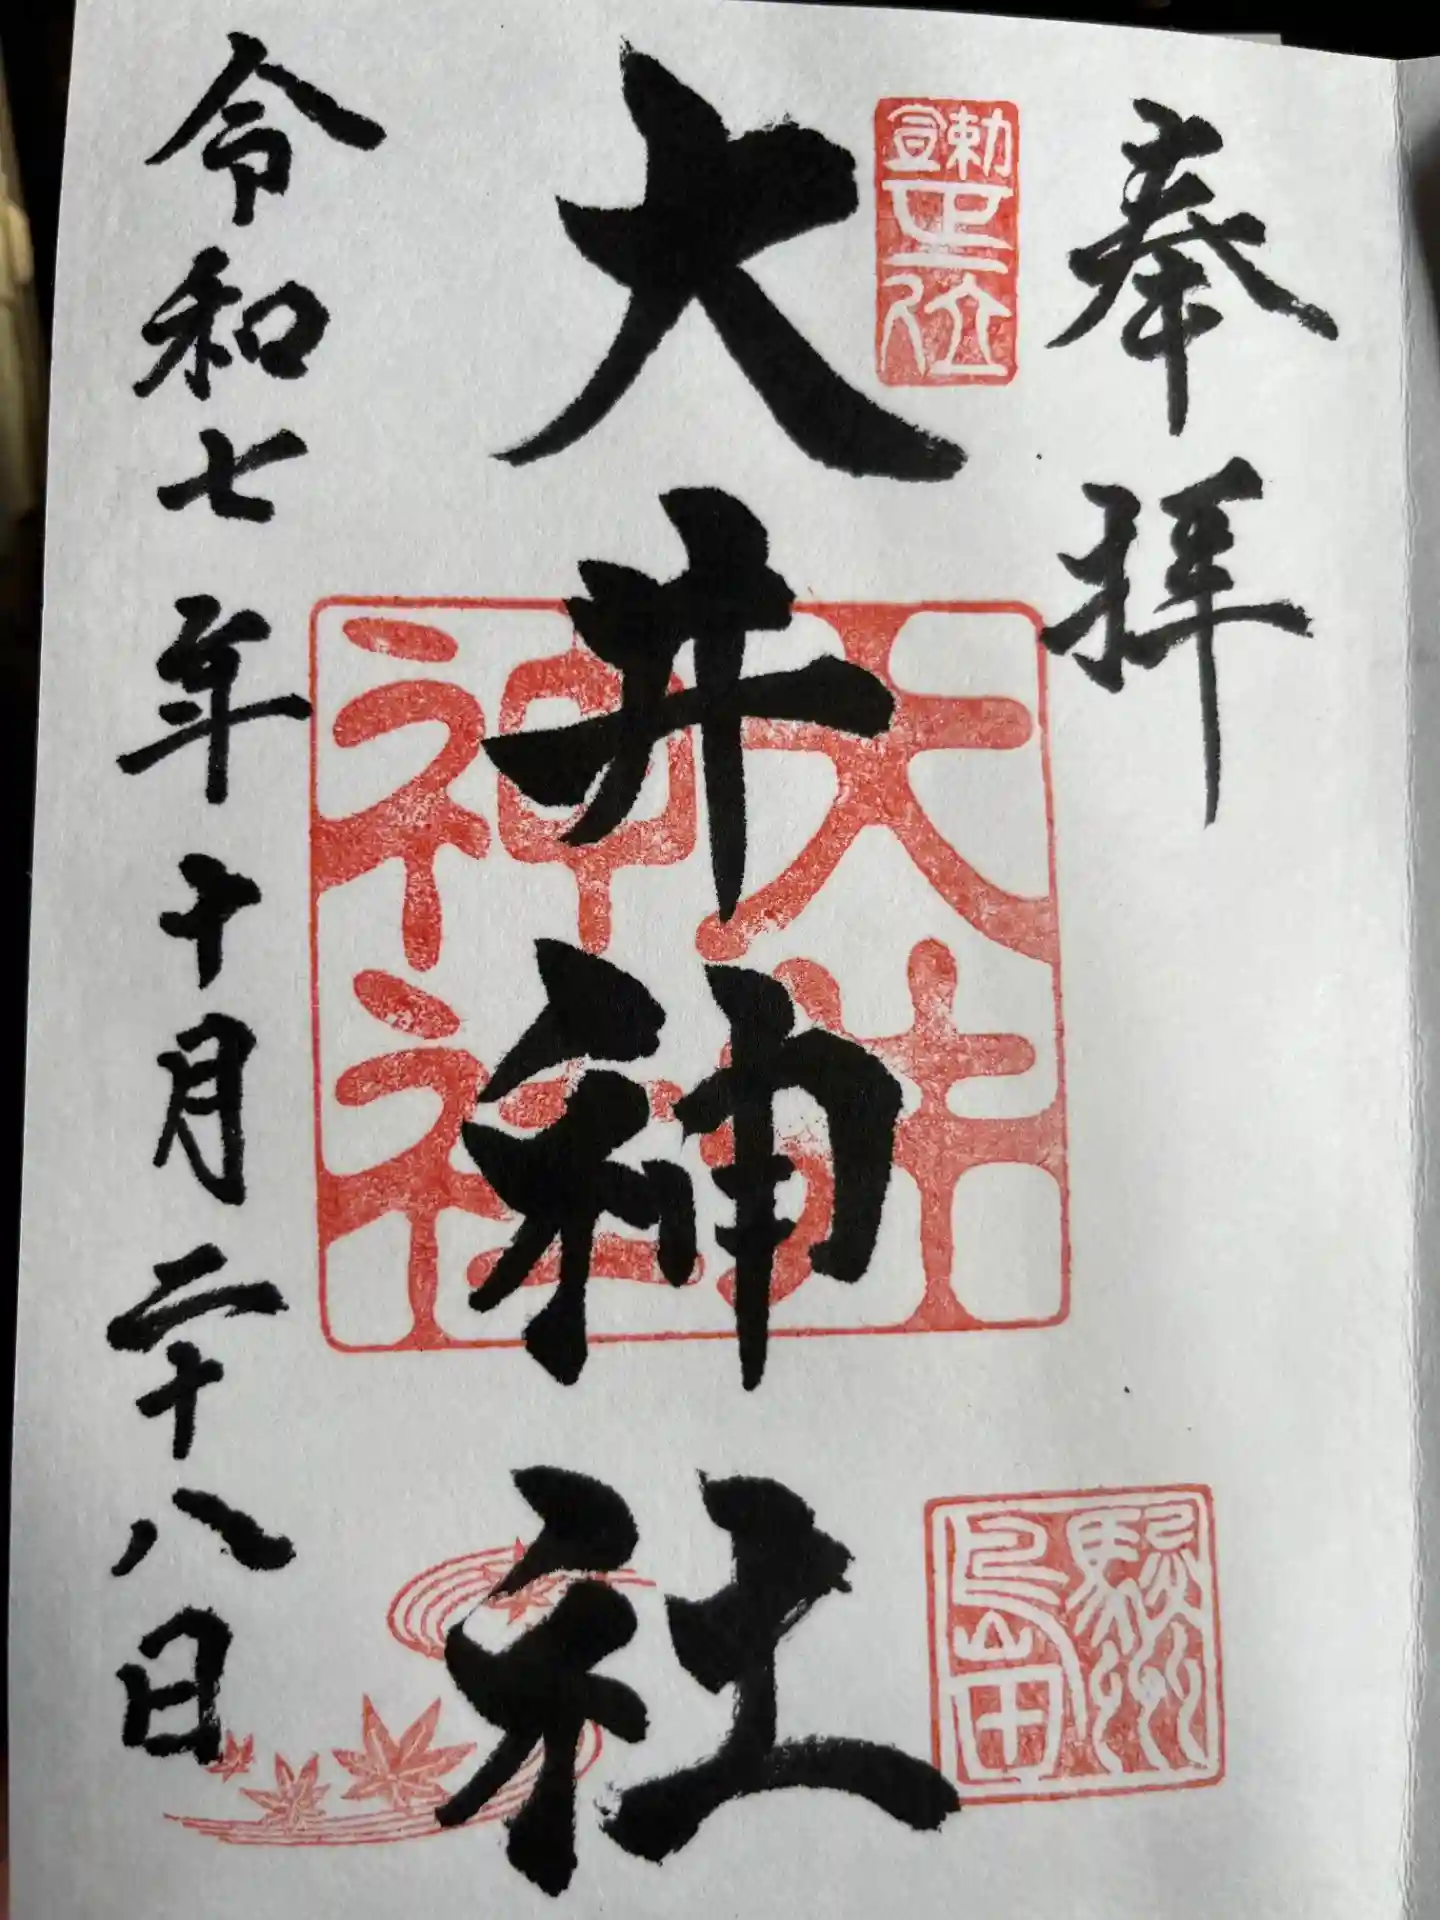 奉拝
勅宣正一位
駿州島田
大井神社
大井神社
令和七年十月二十八日